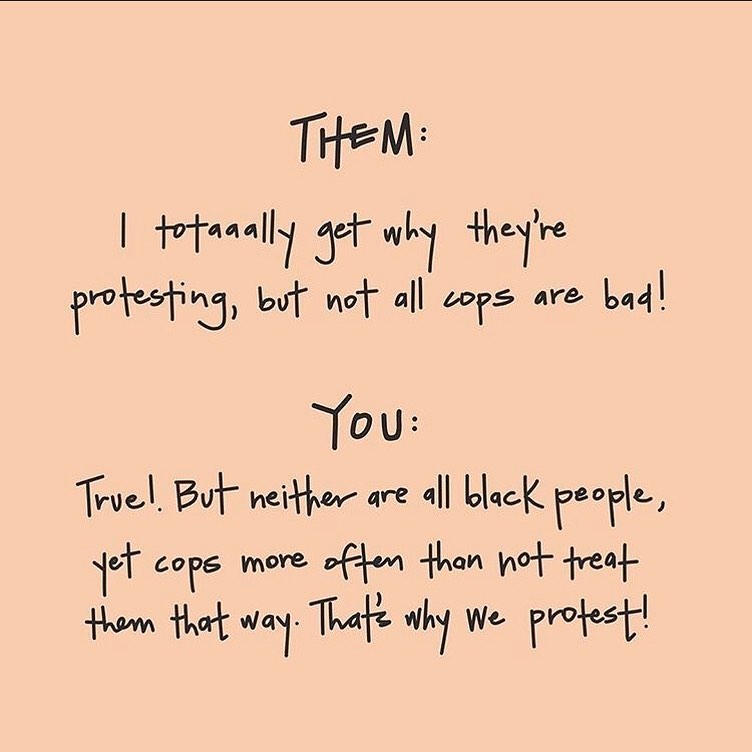 THEM:
I totaaally get why they're
protesting, but not all cops are bad!
YOU:
True! But neither are all black people,
yet cops more often than not treat
them that way. That's why we protest!